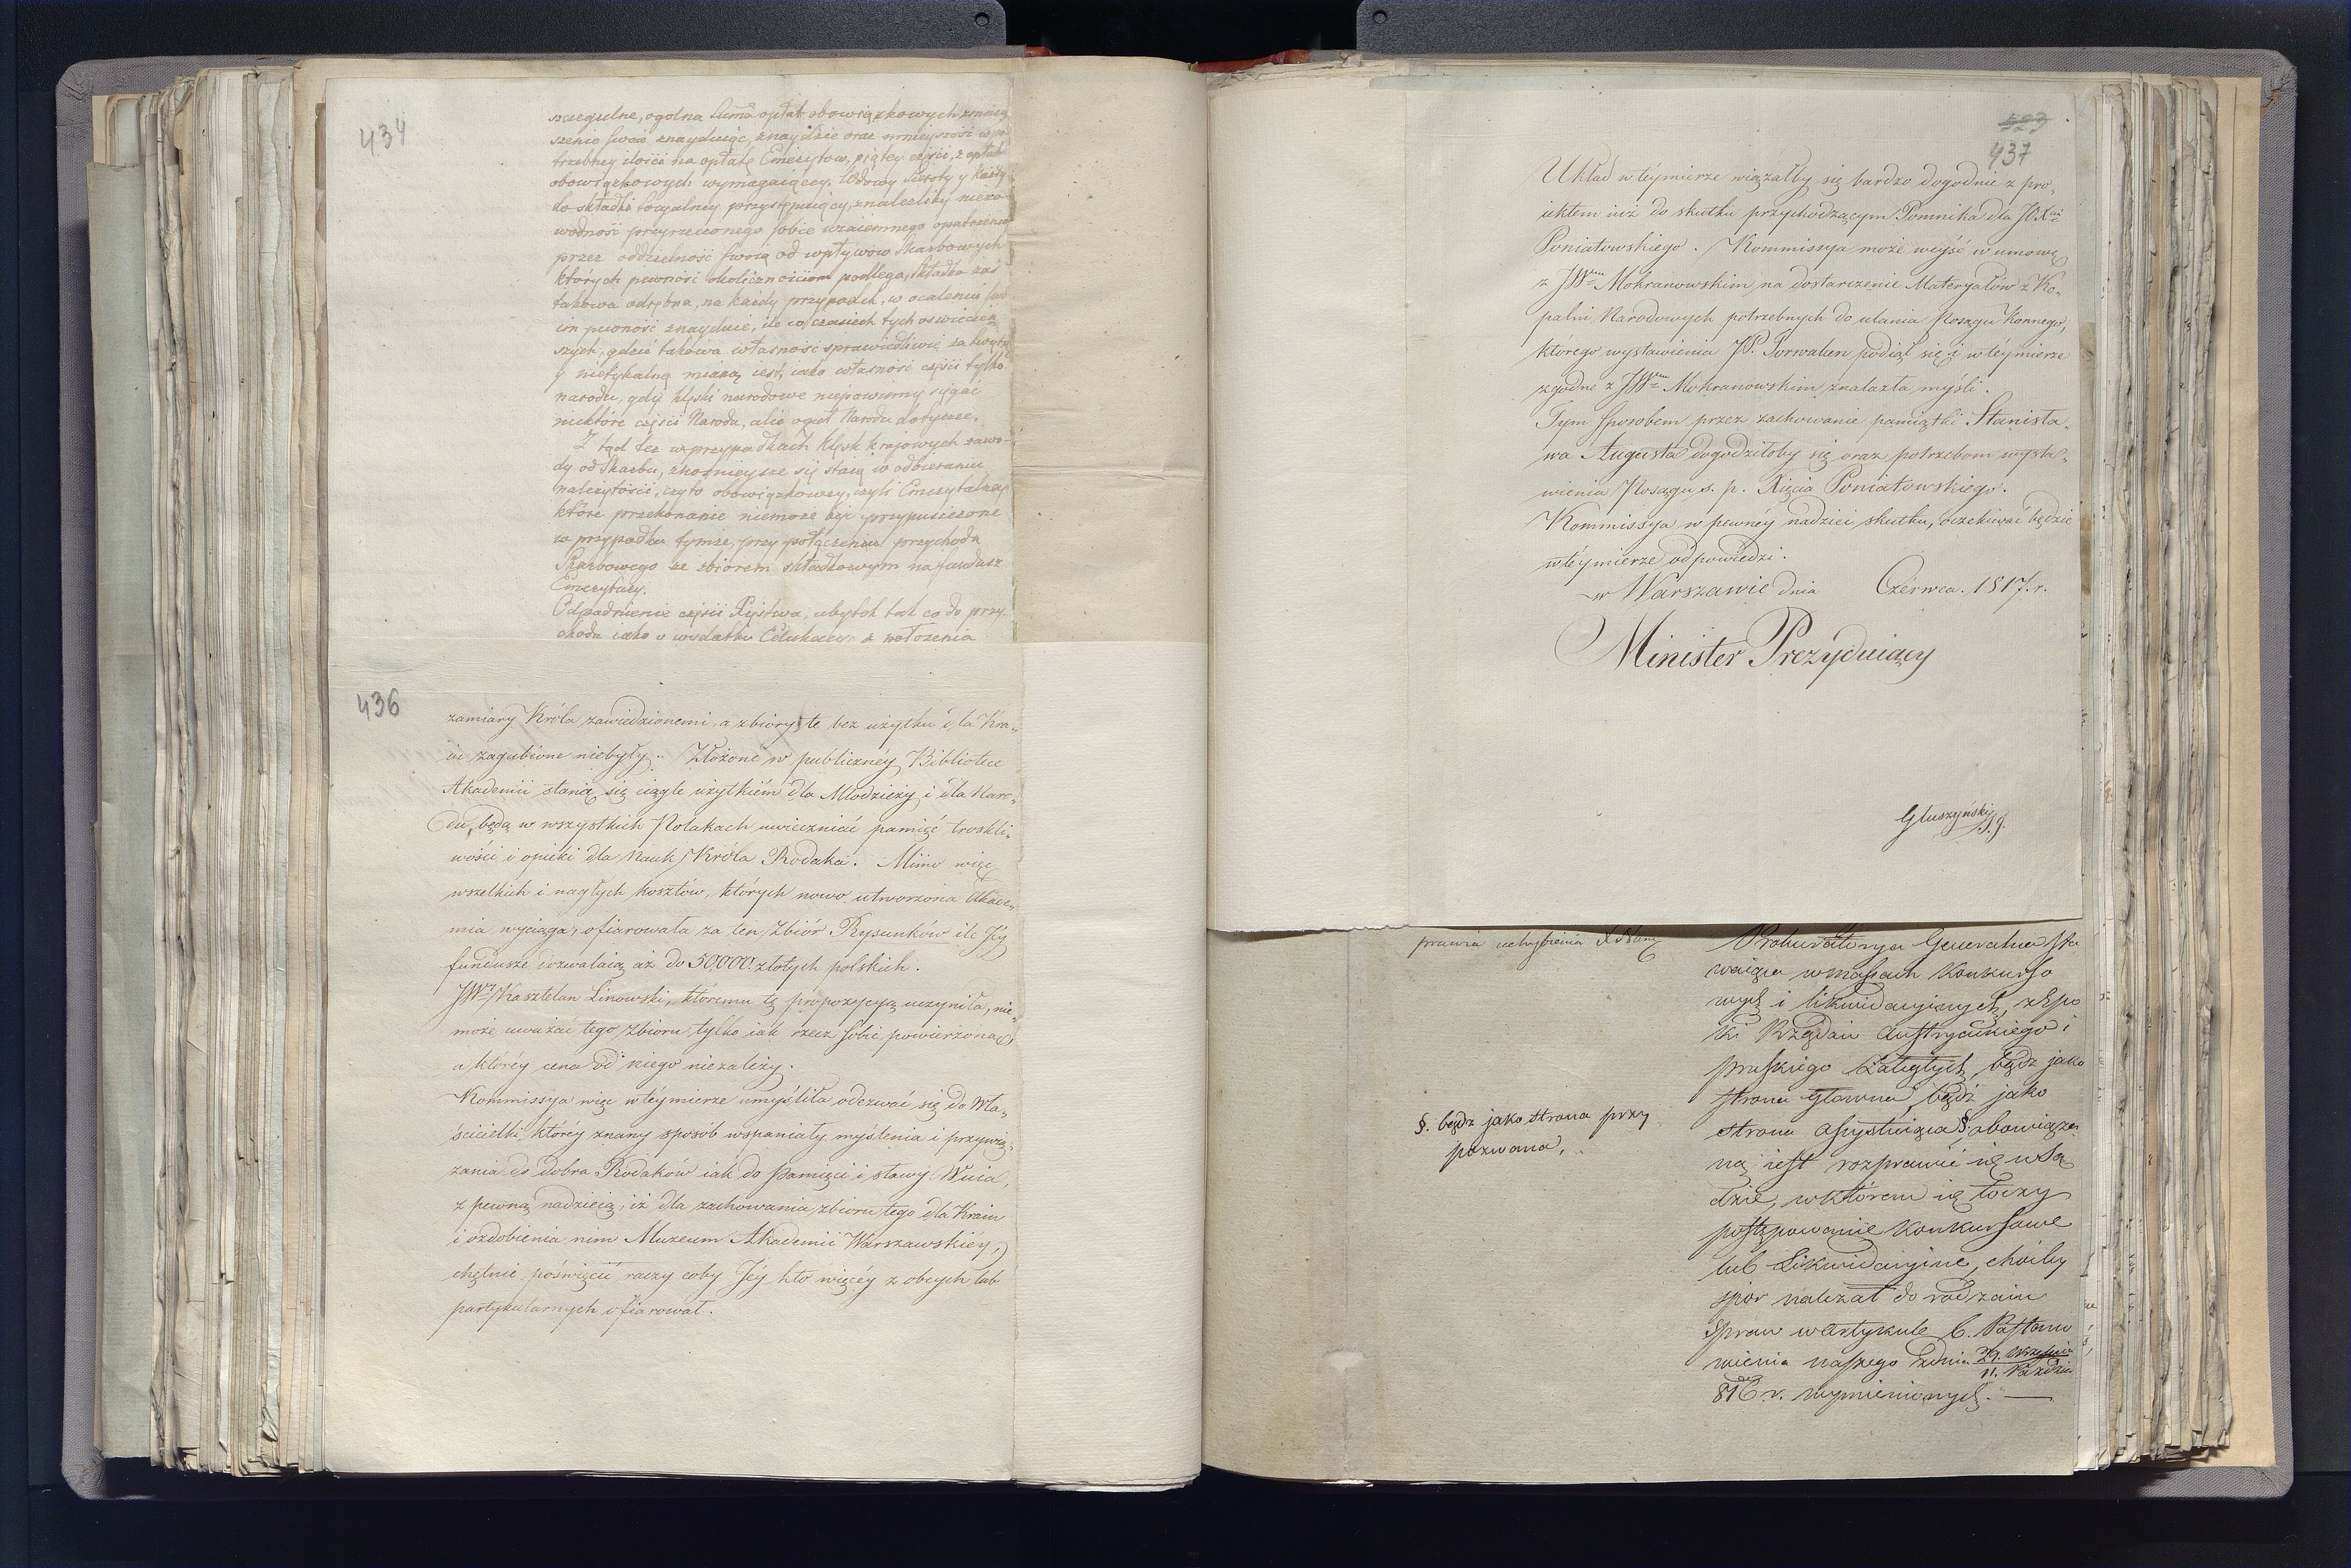 434
szczegulne, ogolna Summa opłat obowiązkowych zmniey
szenie swoie znayduiąc, znaydzie oraz mnieyszość w po
trzebney ilości na opłatę Emerytów, piątey części, z opłat
obowiązkowych wymagaiącey. Wdowy Sieroty y każdy
do składki socyalney przystępuiący, znalezliby nieza
wodność przyrzeczonego sobie wzaiemnego opatrzenia
przez oddzielność swoią od wpływów Skarbowych
których pewność okolicznościom podlega, składka zaś
takowa odrębna, na każdy przypadek, w ocaleniu
pewność znayduie, ile w czasiech tych oświecień
szych, gdzie takowa własność sprawiedliwie za świętą
y nietykalną mianą iest, iako własność części tylko
narodu, gdy klęski narodowe niepowinny sięgać
niektóre części Narodu, ale ogół Narodu dotyczeć.
Z tąd też w przypadkach klęsk krajowych zawo-
dy od Skarbu, znośnieysze się staią w odbieraniu
należytości, czyto obowiązkowey, czyli Emerytalney
które przekonanie niemoże być przypuszczone
w przypadku tymże, przy połączeniu przychodu
Skarbowego ze zbiorem składkowym na fundusz
Emerytury.
Odpadnienie części Xięstwa, ubytek tak co do przy
chodu iako y wydatku Edukacyi z położenia
436
zamiary Króla zawiedzionemi, a zbiory te bez użytku dla Kra„
iu zagubione niebyły. Złożone w publicznéy Bibliotece
Akademii staną się ciągle użytkiém dla Młodzieży i dla Naro„
du, będą w wszystkich Polakach uwieczniać pamięć troskli„
wości i opieki dla Nauk Króla Rodaka. Mimo więc
wszelkich i nagłych kosztów, których nowo utworzona Akade„
mia wyciąga, ofiarowała za ten Zbiór Rysunków ile Jéy
fundusze dozwalaią aż do 50,000. złotych polskich.
JWny Kasztelan Linowski, któremu tę propozycyą uczyniła, nie„
może uważać tego Zbioru, tylko iak rzecz sobie powierzoną,
a któréy cena od niego niezależy.
Kommissya więc wtéymierze umyśliła odezwać się do Wła„
ścicielki któréy znany sposób wspaniały myślenia i przywią„
zania do dobra Rodaków iak do pamięci i sławy Wuia,
z pewną nadzieią, iż dla zachowania zbioru tego dla Kraiu
i ozdobienia nim Muzeum Akademii Warszawskiéy,
chętnie poświęcić raczy coby Jéy kto więcéy z obcych lub
partykularnych ofiarował.
523
437
Układ wtéymierze wiązałby się bardzo dogodnie z pro„
iektem iuż do skutku przychodzącym Pomnika dla JOXcia
Poniatowskiego. Kommissya może weyść w umowę
z JWnym Mokranowskim, na dostarczenie Materyałów z Ko„
palni Narodowych potrzebnych do ulania Posągu Konnego,
którego wystawienia JP. Torwalsen podiął się i wtéymierze
zgodne z JWnym Mokranowskim znalazła myśli.
Tym sposobem przez zachowanie pamiątki Stanisła„
wa Augusta dogodziłoby się oraz potrzebom wysta„
wienia Posągu s. p. Xięcia Poniatowskiego.
Kommissya w pewnéy nadziei skutku, oczekiwać będzie
wtéymierze odpowiedzi.
w Warszawie dnia Czérwca. 1817. r.
Minister Prezyduiący
Głuszyński SJ.
prawia uchybienia
Prokuratorya Generalna sta
waiąca w massach konkurso
wych i likwidacyinych, z Epo
ki Rządu Austryackiego i
pruskiego zaległych, bądz jako
strona główna, bądź jako
strona assystuiąca §, obowiąza
ną iest rozprawić się w Są
dzie, w którem się toczy
postępowanie konkursowe
lub Likwidacyine, choćby
spór należał do rodzaiu
Spraw w Artykule 6. Postano
wienia naszego z dnia 29. Września
11. Paździe
816 r. wymienionych. —
§. bądz jako strona przy
pozwana,